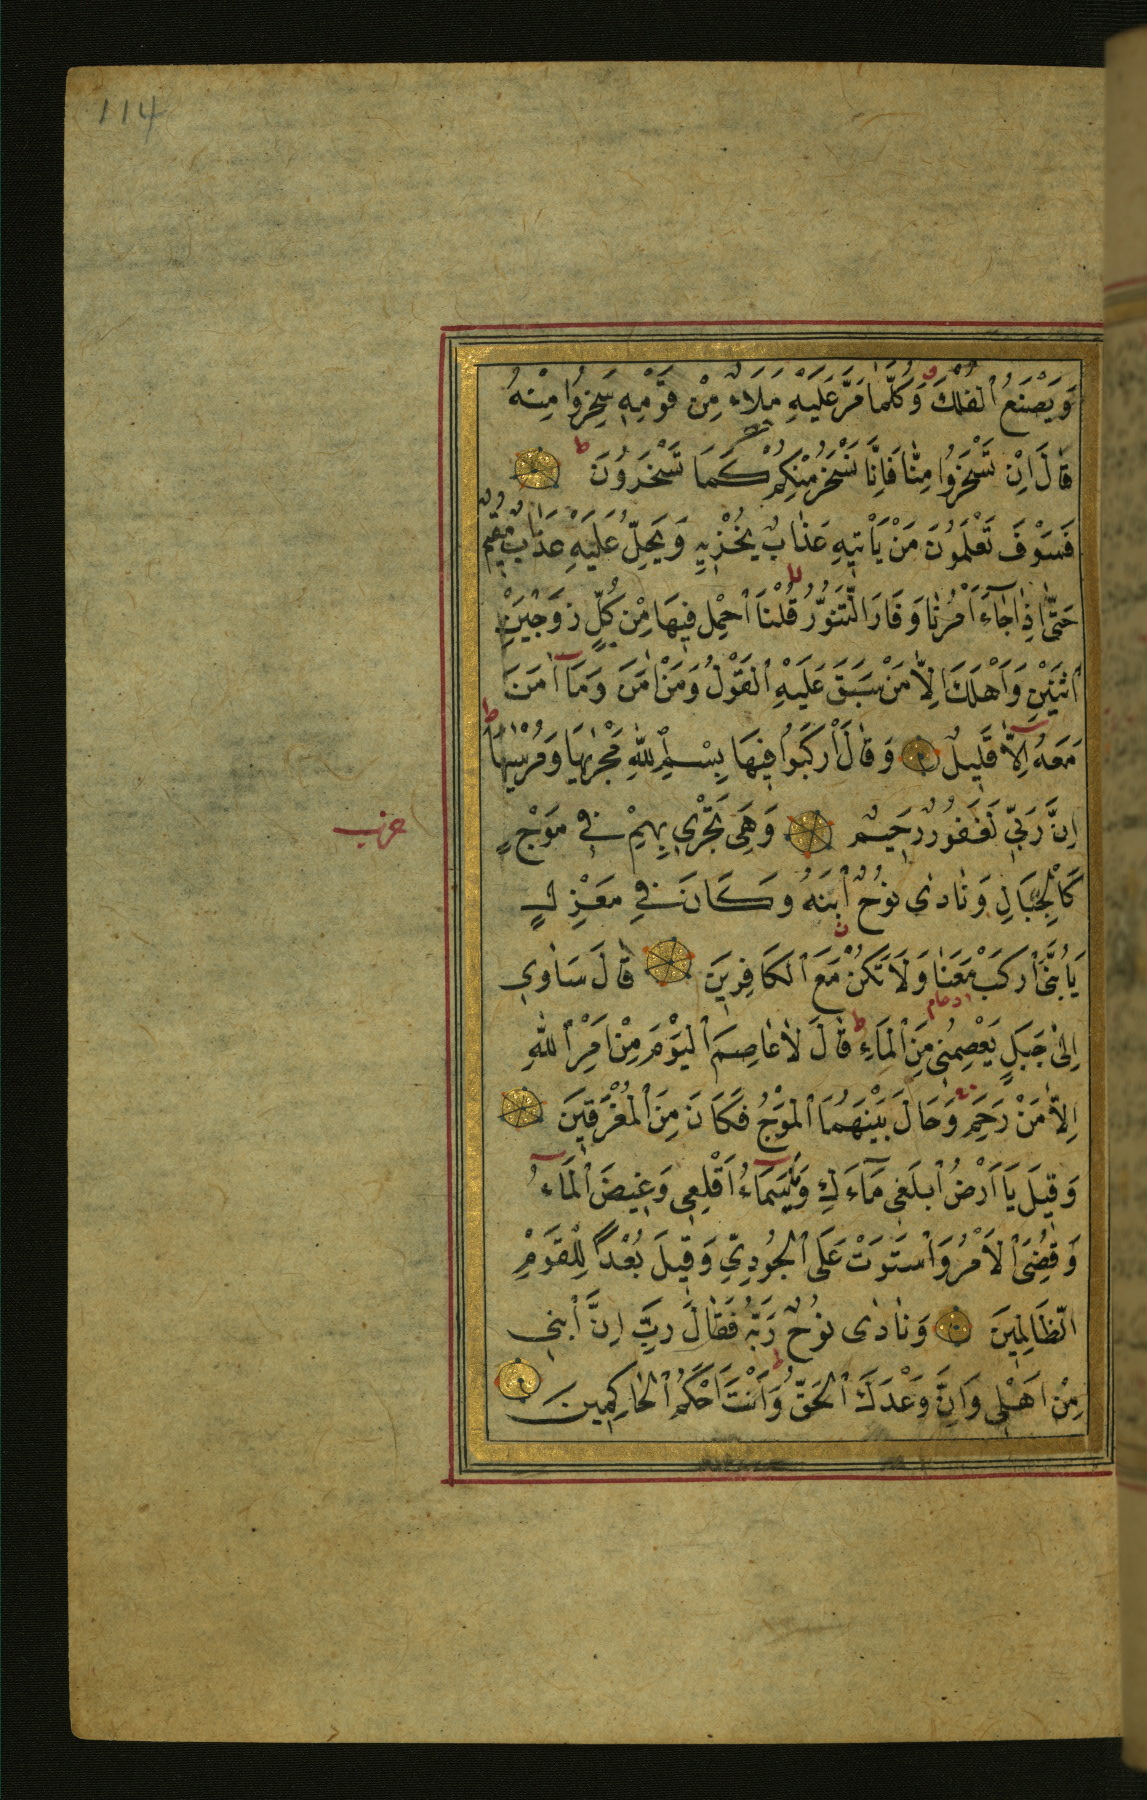 114
وَيَصْنَعُ ٱلْفُلْكَ وَكُلَّمَا مَرَّ عَلَيْهِ مَلَاءٌ مِنْ قَوْمِهِ سَخِرُوا مِنْهُ
قَالَ اِنْ تَسْخَرُوا مِنَّا فَاِنَّا نَسْخَرُ مِنْكُمْ كَمَا تَسْخَرُونَ ط
فَسَوْفَ تَعْلَمُونَ مَنْ يَأْتِيهِ عَذَابٌ يُخْزِيهِ وَيَحِلُّ عَلَيْهِ عَذَابٌ مُقِيمٌ
حَتّٰى اِذَا جَآءَ اَمْرُنَا وَفَارَ التَّنُّورُ قُلْنَا ٱحْمِلْ فِيهَا مِنْ كُلٍّ زَوْجَيْنِ
ٱثْنَيْنِ وَاَهْلَكَ اِلَّا مَنْ سَبَقَ عَلَيْهِ ٱلْقَوْلُ وَمَنْ اٰمَنَ وَمَآ اٰمَنَ
مَعَهُ اِلَّا قَلِيلٌ وَقَالَ ٱرْكَبُوا فِيهَا بِسْمِ ٱللّٰهِ مَجْرٰيهَا وَمُرْسٰيهَا ط
اِنَّ رَبِّي لَغَفُورٌ رَحِيمٌ وَهِيَ تَجْرِي بِهِمْ فِي مَوْجٍ
حزب
كَٱلْجِبَالِ وَنَادٰى نُوحٌ ٱبْنَهُ وَكَانَ فِي مَعْزِلٍ
يَابُنَيَّ ٱرْكَبْ مَعَنَا وَلَا تَكُنْ مَعَ ٱلْكَافِرِينَ قَالَ سَاٰوِي
ادغام
اِلٰى جَبَلٍ يَعْصِمُنِي مِنَ ٱلْمَآءِ ط قَالَ لَا عَاصِمَ ٱلْيَوْمَ مِنْ اَمْرِ ٱللّٰهِ
اِلَّا مَنْ رَحِمَ وَحَالَ بَيْنَهُمَا ٱلْمَوْجُ فَكَانَ مِنَ ٱلْمُغْرَقِينَ
وَقِيلَ يَا اَرْضُ ٱبْلَعِي مَآءَكِ وَيَٰسَمَآءُ اَقْلِعِي وَغِيضَ ٱلْمَآءُ
وَقُضِيَ ٱلْاَمْرُ وَٱسْتَوَتْ عَلَى ٱلْجُودِيِّ وَقِيلَ بُعْدًا لِلْقَوْمِ
الظَّالِمِينَ وَنَادٰى نُوحٌ رَبَّهُ فَقَالَ رَبِّ اِنَّ ٱبْنِي
مِنْ اَهْلِي وَاِنَّ وَعْدَكَ ٱلْحَقُّ وَاَنْتَ اَحْكَمُ ٱلْحَاكِمِينَ